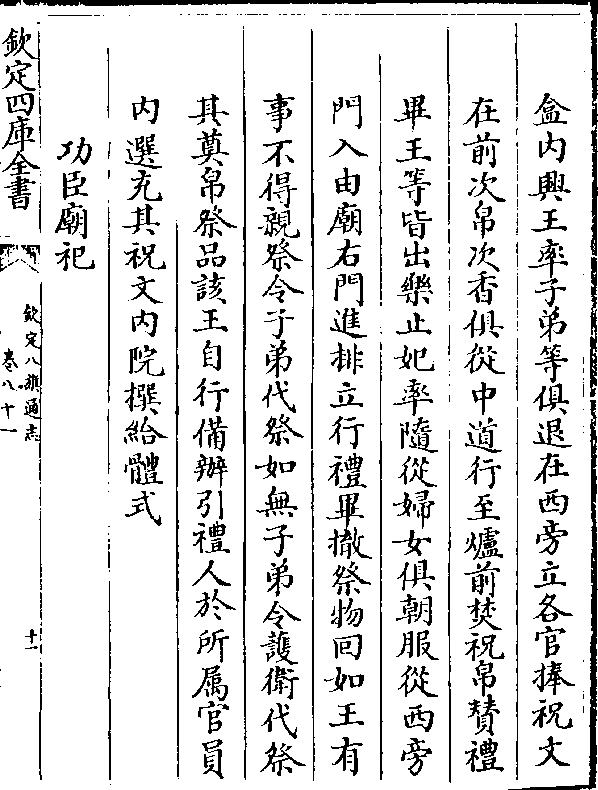 盒内興王率子弟等俱退在西旁立各官捧祝文
在前次帛次香俱從中道行至爐前焚祝帛贊禮
畢王等皆出樂止妃率隨從婦女俱朝服從西旁
門入由廟右門進排立行禮畢撤祭物回如王有
事不得親祭令子弟代祭如無子弟令護衛代祭
其奠帛祭品該王自行備辦引禮人於所属官員
内選充其祝文内院撰給體式
功臣廟祀
欽定四庫全書
欽定八旗通志
卷八十一
十一